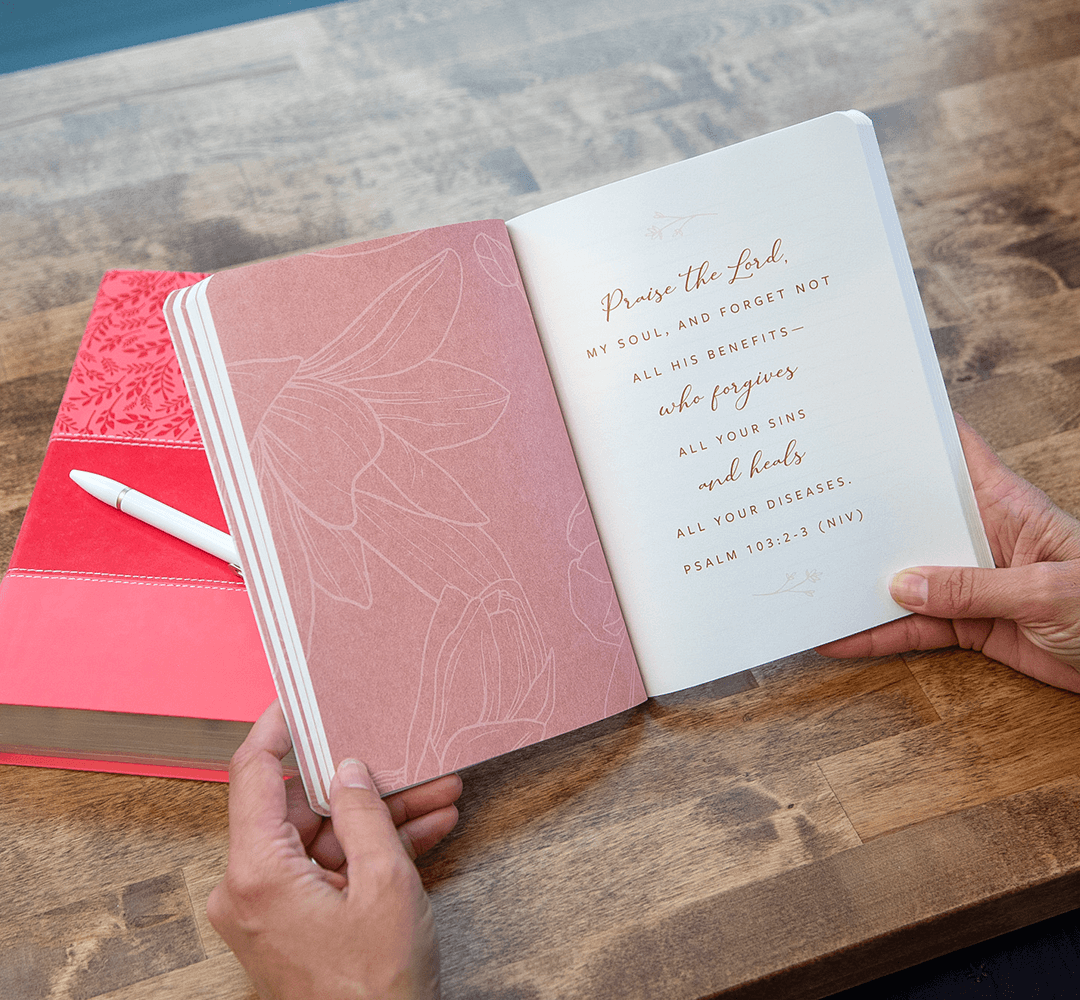 Praise the Lord,
MY SOUL, AND FORGET NOT
ALL HIS BENEFITS—
who forgives
ALL YOUR SINS
and heals
ALL YOUR DISEASES.
PSALM 103:2-3 (NIV)